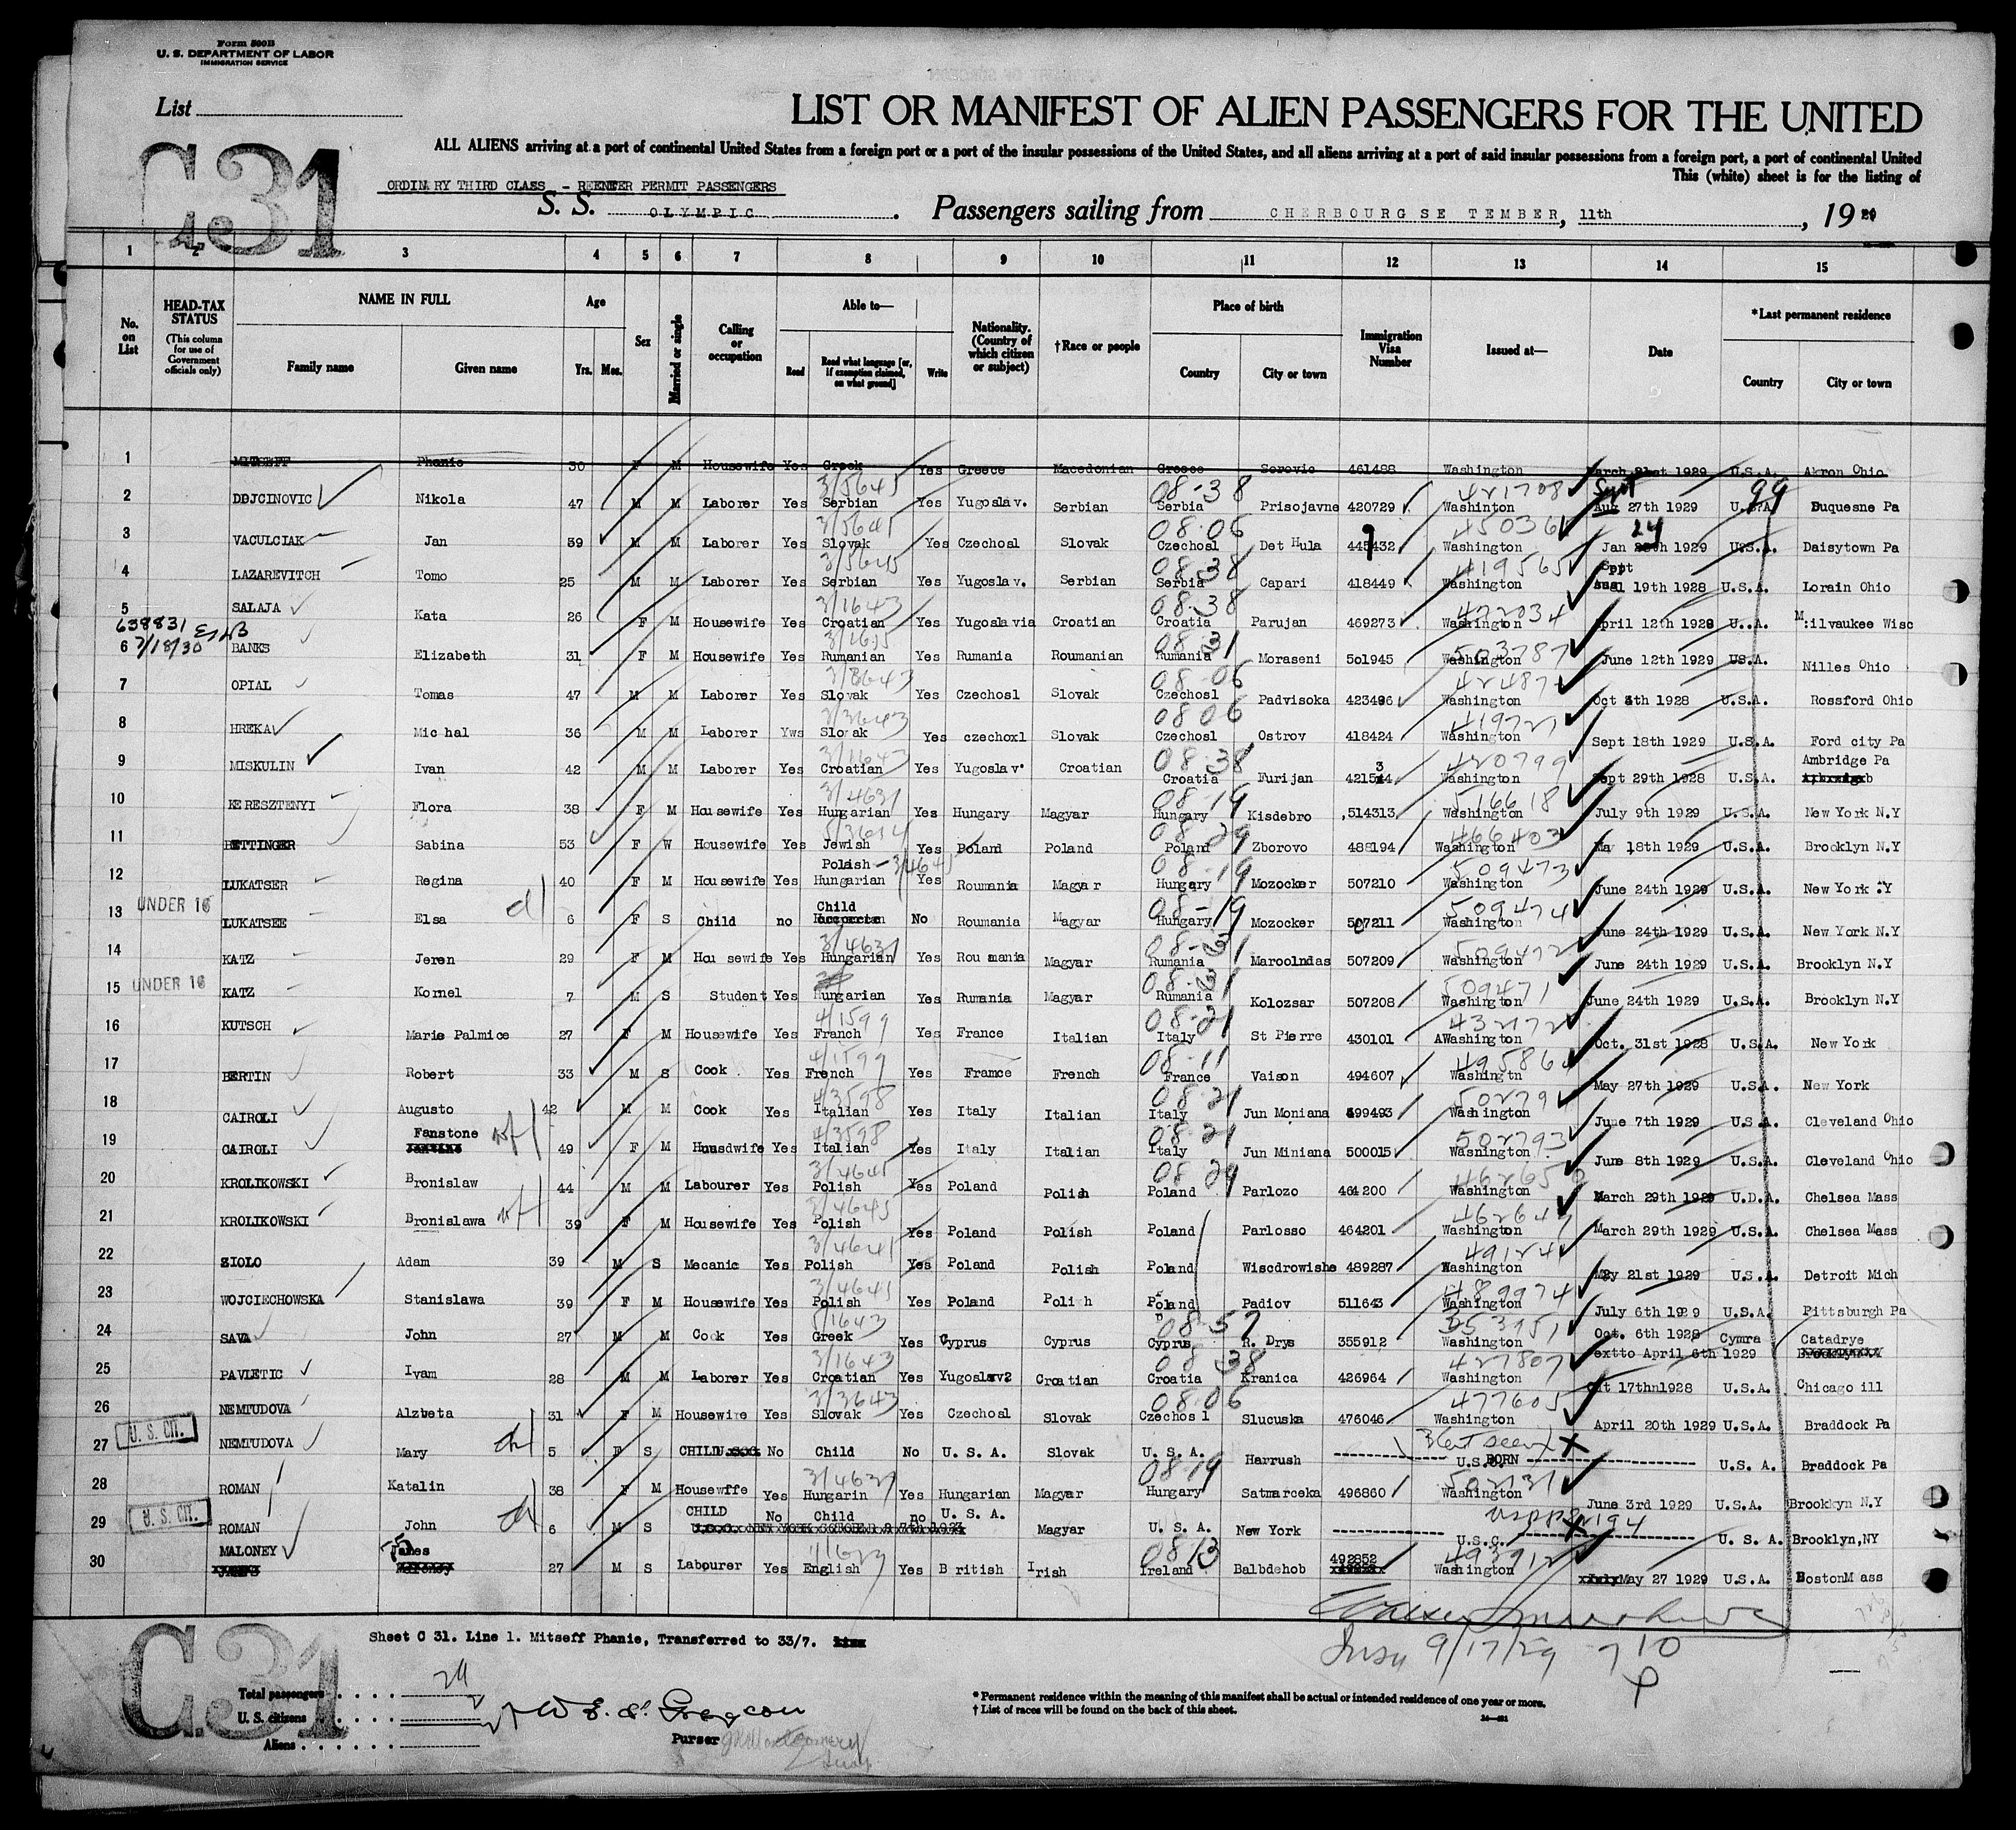 Form 500B
U. S. DEPARTMENT OF LABOR
IMMIGRATION SERVICE
List
LIST OR MANIFEST OF ALIEN PASSENGERS FOR THE UNITED
ALL ALIENS arriving at a port of continental United States from a foreign port or a port of the insular possessions of the United States, and all aliens arriving at a port of said insular possessions from a foreign port, a port of continental United
This (white) sheet is for the listing of
C31
ORDINARY THIRD CLASS - REENTER PERMIT PASSENGERS
S. S. OLYMPIC . Passengers sailing from CHERBOURG SE TEMBER, 11th , 19
1 2 3 4 5 6 7 8 9 10 11 12 13 14 15
No. on List
HEAD-TAX STATUS (This column for use of Government officials only)
NAME IN FULL
Family name Given name
Age Yrs. Mos.
Sex
Married or single
Calling or occupation
Able to—
Read Read what language [or, if exemption claimed, on what ground] Write
Nationality. (Country of which citizen or subject)
†Race or people
Place of birth
Country City or town
Immigration Visa Number
Issued at—
Date
*Last permanent residence
Country City or town
1 MITSEFF Phanie 30 F M Housewife Yes Greek Yes Greece Macedonian Greece Sorovic 461488 Washington March 21st 1929 U.S.A. Akron Ohio
3/5645 08-38 421708 Sept 99
2 DDJCINOVIC Nikola 47 M M Laborer Yes Serbian Yes Yugoslav. Serbian Serbia Prisojavne 420729 Washinton Aug 27th 1929 U.S.A. Duquesne Pa
3/5645 08-06 45036 24
3 VACULCIAK Jan 39 M M Laborer Yes Slovak Yes Czechosl Slovak Czechosl Det Hula 445432 Washington Jan 1929 U.S.A. Daisytown Pa
3/5645 08-38 419565 Sept
4 LAZAREVITCH Tomo 25 M M Laborer Yes Serbian Yes Yugoslav. Serbian Serbia Capari 418449 Washington 19th 1928 U.S.A. Lorain Ohio
3/1643 08-38 472034
5 SALAJA Kata 26 F M Housewife Yes Croatian Yes Yugoslavia Croatian Croatia Parujan 469273 Washington April 12th 1929 U..A. M:ilvaukee Wisc
638831 7/18/30 08-31 503787
6 BANKS Elizabeth 31 F M Housewife Yes Rumanian Yes Rumania Roumanian Rumania Moraseni 501945 Washington June 12th 1929 US.A. Nilles Ohio
3/3643 08-06
7 OPIAL Tomas 47 M M Laborer Yes Slovak Yes Czechosl Slovak Czechosl Padvisoka 423496 Washington Oct 1928 U.S.A. Rossford Ohio
3/3643 08 06 419721
8 HREKA Michal 36 M M Laborer Yws Slovak Yes czechoxl Slovak Czechosl Ostrov 418424 Washington Sept 18th 1929 U.S.A. Ford city Pa
3/1643 08-38 420799
9 MISKULIN Ivan 42 M M Laborer Yes Croatian Yes Yugoslav. Croatian Croatia Furijan Washington Sept 29th 1928 U.S.A. Ambridge Pa
3/4631 08-19 516618
10 KERESZTENYI Flora 38 F M Housewife Yes Hungarian Yes Hungary Magyar Hungary Kisdebro 514313 Washington July 9th 1929 U.S.A. New York N.Y
08-29 466403
11 BETTINGER Sabina 53 F W Housewife Yes Jewish Yes Poland Poland Poland Zborovo 488194 Washington May 18th 1929 U.S.A. Brooklyn N.Y
Polish - 3/4645 08-19 509473
12 LUKATSER Regina 40 F M Housewife Yes Hungarian Yes Roumania Magyar Hungary Mozocker 507210 Washington June 24th 1929 U.S.A. New York :Y
UNDER 16 Child 08-19 509474
13 LUKATSEE Elsa 6 F S Child no No Roumania Magyar Hungary Mozocker 507211 Washington June 24th 1929 U.S.A. New York N.Y
3/4631 08-31 509472
14 KATZ Jeren 29 F M Housewife Yes Hungarian Yes Roumania Magyar Rumania Maroolndas 507209 Washington June 24th 1929 U.S.A. Brooklyn N.Y
UNDER 16 08-31 509471
15 KATZ Kornel 7 M S Student Yes Hungarian Yes Rumania Magyar Rumania Kolozsar 507208 Washington June 24th 1929 U.S.A. Brooklyn N.Y
4/1599 08-21 432172
16 KUTSCH Marie Palmice 27 F M Housewife Yes Franch Yes France Italian Italy St Pierre 430101 AWashington Oct. 31st 1928 U.S.A. New York
4/1599 08-11 49586
17 BERTIN Robert 33 M S Cook Yes French Yes Framce French France Vaison 494607 Washingtn May 27th 1929 U.S.A. New York
4/3598 08-21 50279
18 CAIROLI Augusto 42 M M Cook Yes Italian Yes Italy Italian Italy Jun Moniana 499493 Washington June 7th 1929 U.S.A. Cleveland Ohio
Fanstone wf 4/3598 08-21 502793
19 CAIROLI 49 F M Huusdwife Yes Italian Yes Italy Italian Italy Jun Miniana 500015 Washington June 8th 1929 U.S.A. Cleveland Ohio
3/4645 08 29 46265
20 KROLIKOWSKI Bronislaw 44 M M Labourer Yes Polish Yes Poland Polish Poland Parlozo 464200 Washington March 29th 1929 U.D.A. Chelsea Mass
wf 3/4645 46264
21 KROLIKOWSKI Bronislawa 39 F M Housewife Yes Polish Yes Poland Polish Poland Parlosso 464201 Washington March 29th 1929 U.S.A. Chelsea Mass
3/4641 49124
22 ZIOLO Adam 39 M S Mecanic Yes Polish Yes Poland Polish Poland Wiscdrowishe 489287 Washington May 21st 1929 U.S.A. Detroit Mich
3/4641 489974
23 WOJCIECHOWSKA Stanislawa 39 F M Housewife Yes Polish Yes Poland Polish Poland Padiov 511643 Washington July 6th 1929 U.S.A. Pittsburgh Pa
08-57
24 SAVA John 27 M M Cook Yes Greek Yes Cyprus Cyprus Cyprus R. Drys 355912 Washington Oct. 6th 1928 Cymra Catadrye
extto April 6th 1929
3/1643 08 38 427807
25 PAVLETIC Ivam 28 M M Laborer Yes Croatian Yes Yugoslav2 Croatian Croatia Kranica 426964 Washington Oct 17thn1928 U.S.A. Chicago ill
3/3643 08-06 477605
26 NEMTUDOVA Alzbeta 31 F M Housewife Yes Slovak Yes Czechosl Slovak Czechosl Slucuska 476046 Washington April 20th 1929 U.S.A. Braddock Pa
U. S. CIT. ch
27 NEMTUDOVA Mary 5 F S CHILD No Child No U. S. A. Slovak U. S. A. Harrush U.S. BORN U.S. A. Braddock Pa
08-19 502131
28 ROMAN Katalin 38 F M Housewffe Yes Hungarin Yes Hungarian Magyar Hungary Satmarceka 496860 Washington June 3rd 1929 U.S.A. Brooklyn N.Y
U. S. CIT.
29 ROMAN John 6 M S CHILD No Child no U. S. A. Magyar U. S. A. New York U.S.C. U. S. A. Brooklyn,NY
08 13 493912
30 MALONEY James 27 M S Labourer Yes English Yes British Irish Ireland Balbdehob 492852 Washington May 27 1929 U.S.A. BostonMass
C31
Sheet C 31. Line 1. Mitseff Phanie, Transferred to 33/7.
Insp 9/17/29 710
Total passengers
U. S. citizens
Aliens
Purser
* Permanent residence within the meaning of this manifest shall be actual or intended residence of one year or more.
† List of races will be found on the back of this sheet.